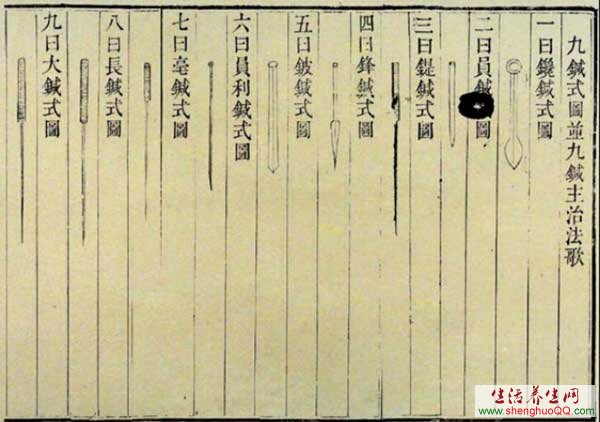 九鍼式圖並九鍼主治法歌
一曰鑱鍼式圖
二曰員鍼圖
三曰鍉鍼式圖
四曰鋒鍼式圖
五曰鈹鍼式圖
六曰員利鍼式圖
七曰毫鍼式圖
八曰長鍼式圖
九曰大鍼式圖
生活养生网
www.shenghuoQQ.com